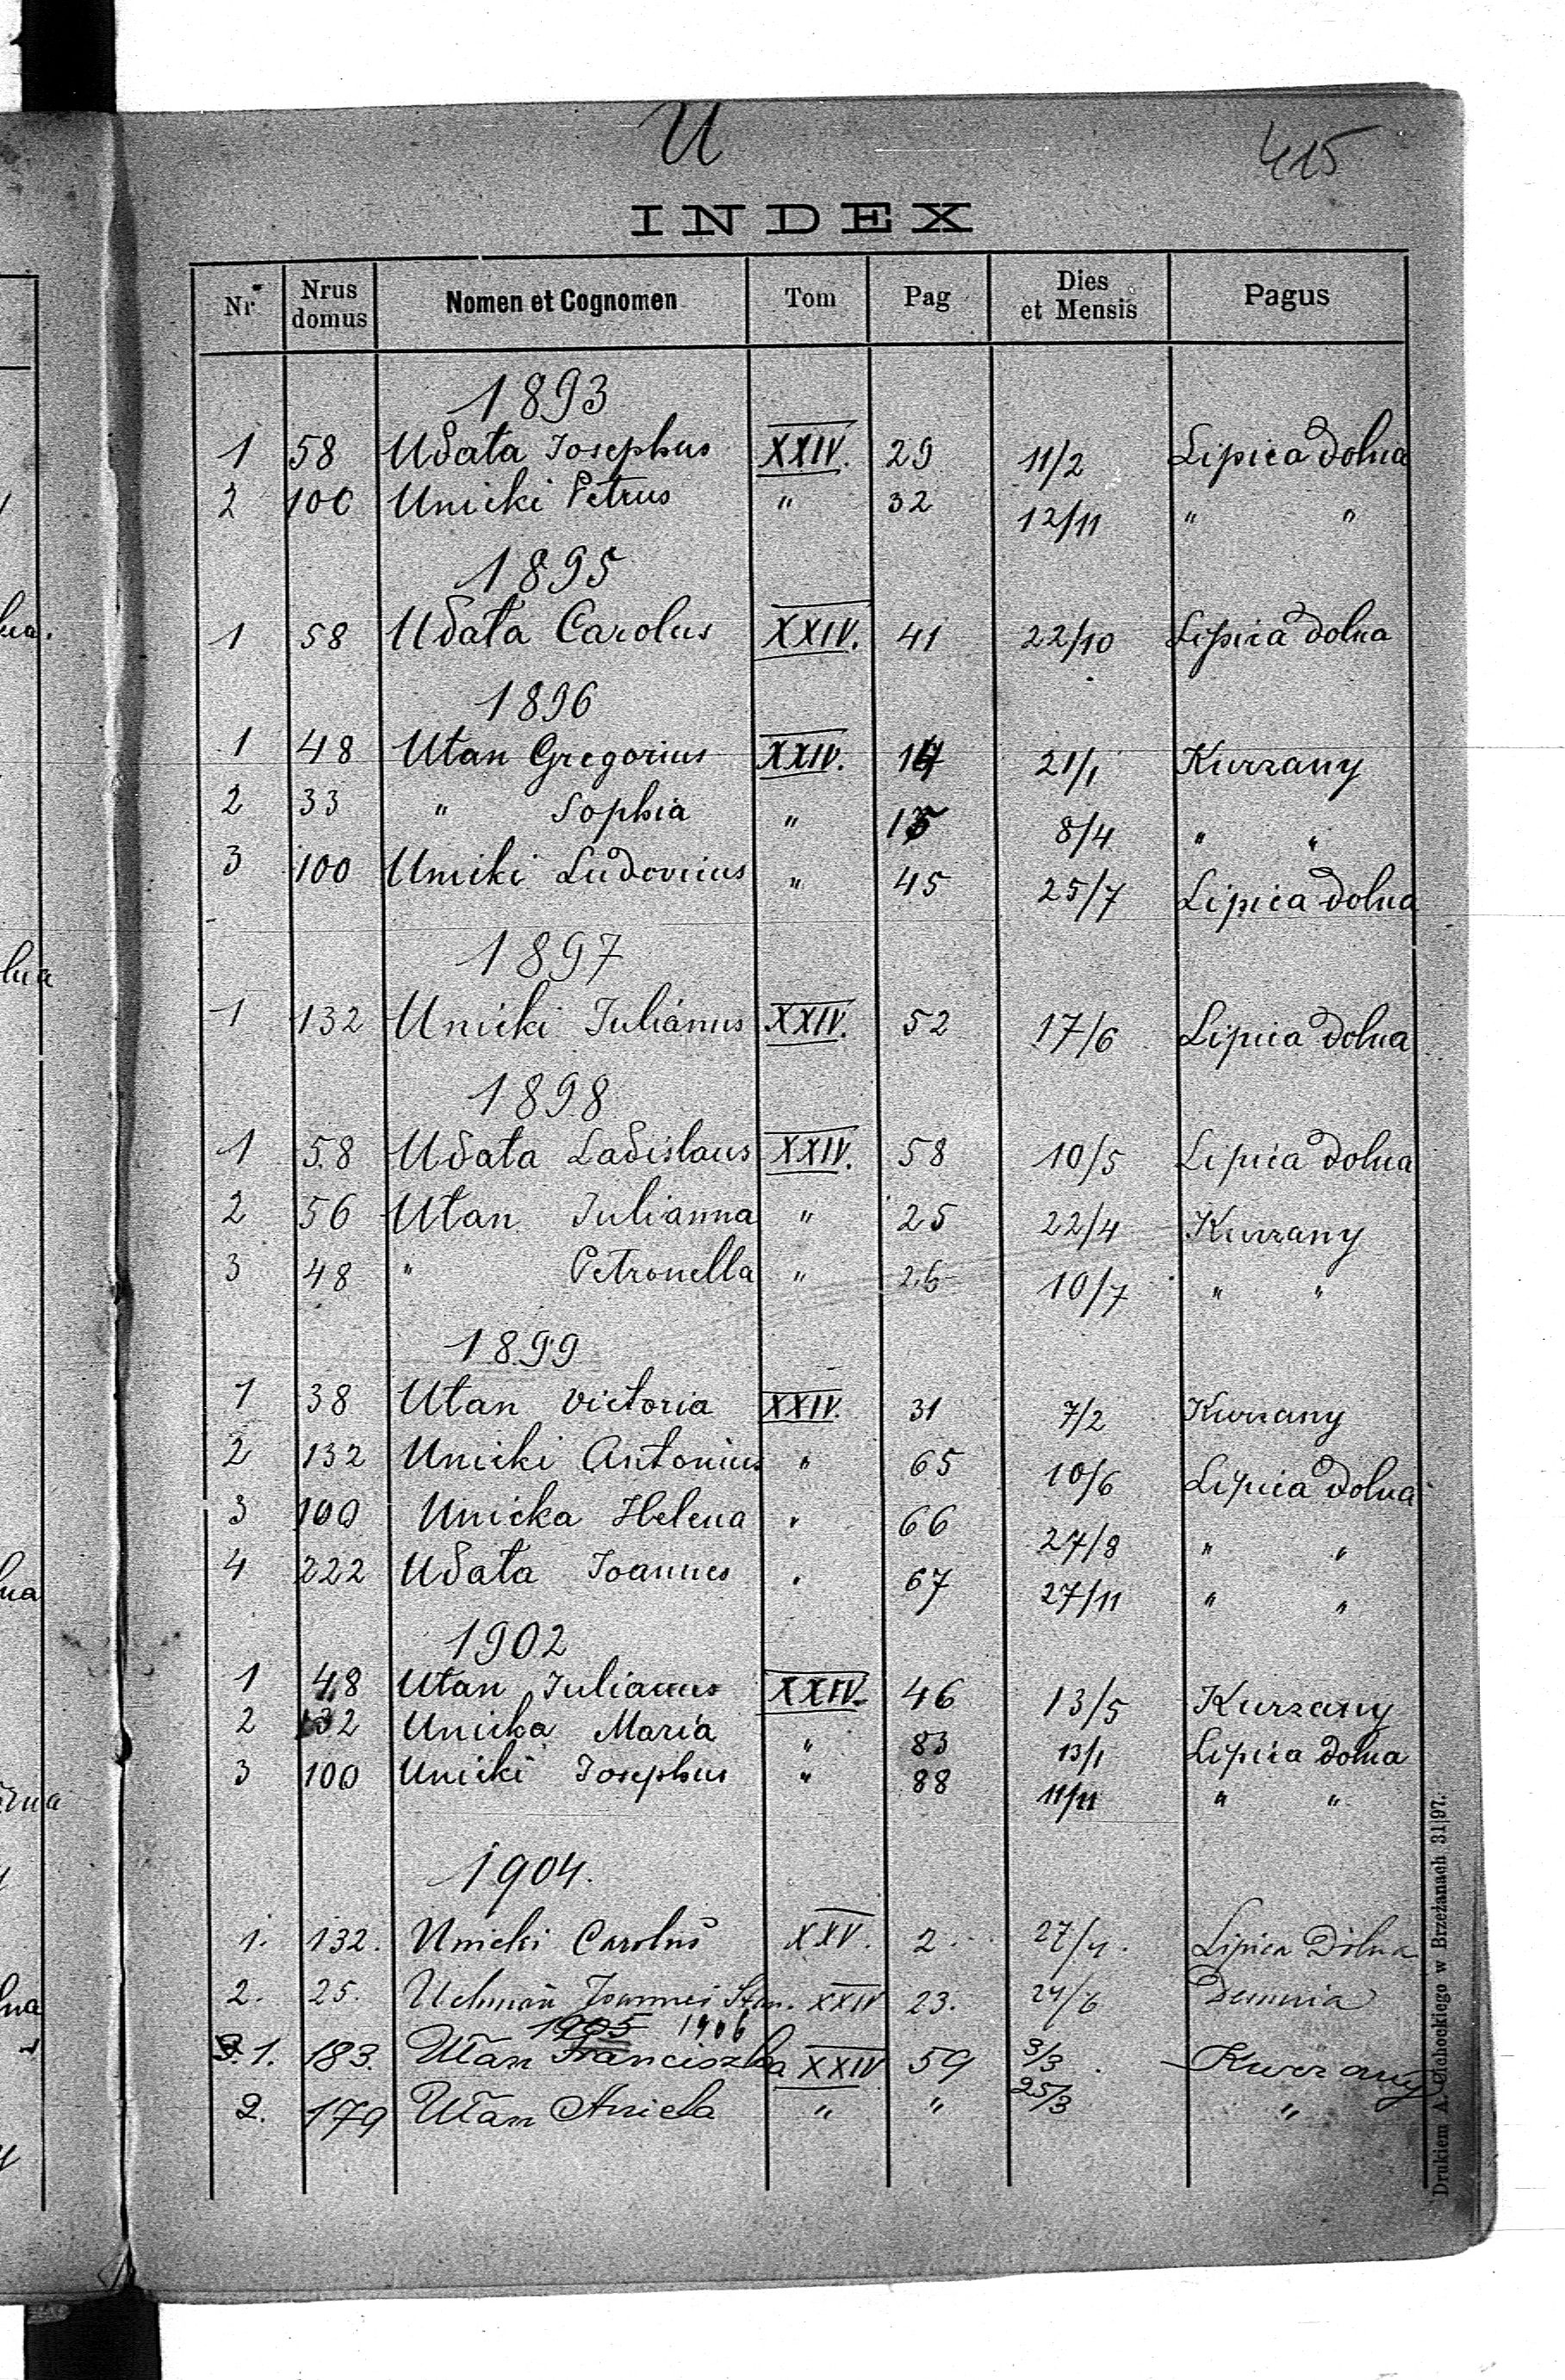 U
415
INDEX
Nr Nrus domus Nomen et Cognomen Tom Pag Dies et Mensis Pagus
1893
1 58 Udata Josephus XXIV. 29 11/2 Lipica dolna
2 100 Unicki Petrus " 32 12/11 " "
1895
1 58 Udata Carolus XXIV. 41 22/10 Lipica dolna
1896
1 48 Utan Gregorius XXIV. 14 21/1 Kurzany
2 33 " Sophia " 15 8/4 " "
3 100 Unicki Ludovicus " 45 25/7 Lipica dolna
1897
1 132 Unicki Julianus XXIV. 52 17/6 Lipica dolna
1898
1 58 Udata Ladislaus XXIV. 58 10/5 Lipica dolna
2 56 Utan Julianna " 25 22/4 Kurzany
3 48 " Petronella " 26 10/7 " "
1899
1 38 Utan Victoria XXIV. 31 7/2 Kurzany
2 132 Unicki Antonius " 65 10/6 Lipica dolna
3 100 Unicka Helena " 66 27/8 " "
4 222 Udata Joannes " 67 27/11 " "
1902
1 48 Utan Julianus XXIV. 46 13/5 Kurzany
2 132 Unicka Maria " 83 13/1 Lipica dolna
3 100 Unicki Josephus " 88 11/11 " "
1904.
1. 132. Unicki Carolus XXV. 2. 27/4. Lipica Dolna
2. 25. Uchman Joannes XXIV 23. 24/6 Demnia
1905 1906
1. 183. Utan Franciszka XXIV 59 3/3. Kurzany
2. 179 Utan Aniela " " 25/3 "
Drukiem A. Cichockiego w Brzeżanach 31|97.